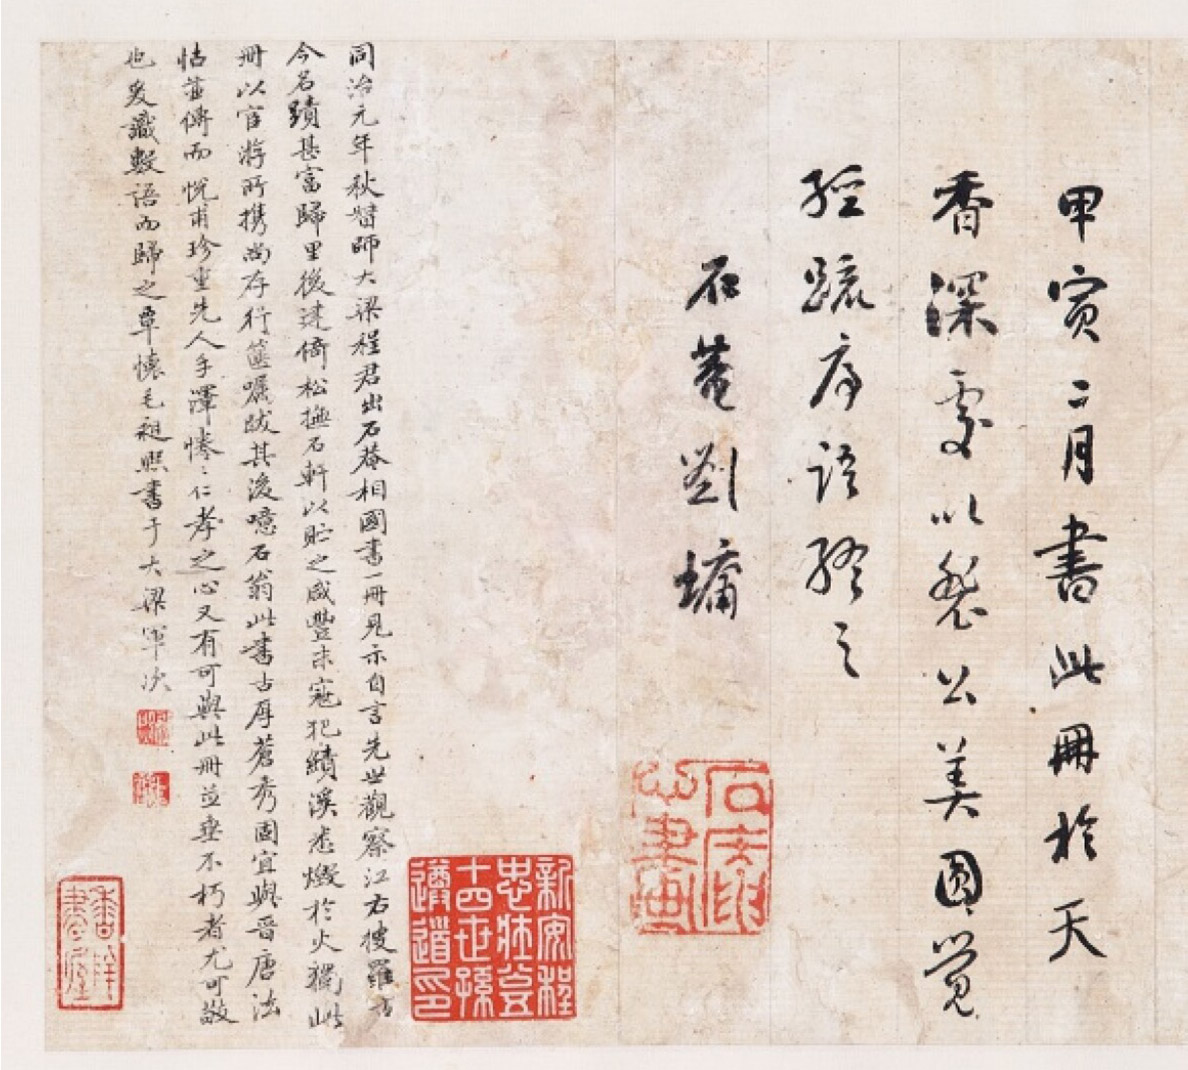 甲寅二月書此冊於天
香深處以裴公美圓覺
經疏序語繼之
石菴劉墉
同治元年秋督師大梁程君出石菴相國書一冊見示自言先世觀察江右搜羅古
今名蹟甚富歸里後建倚松撫石軒以貯之咸豐末寇犯績溪悉燬於火獨此
冊以宦游所攜尚存行篋囑跋其後噫石翁此書古厚蒼秀固宜與晉唐法
帖並傳而悅甫珍重先人手澤惓惓仁孝之心又有可與此冊並垂不朽者尤可敬
也爰識數語而歸之覃懷毛昶熙書于大梁軍次
新安程
忠壯登
十四世孫
遵道印